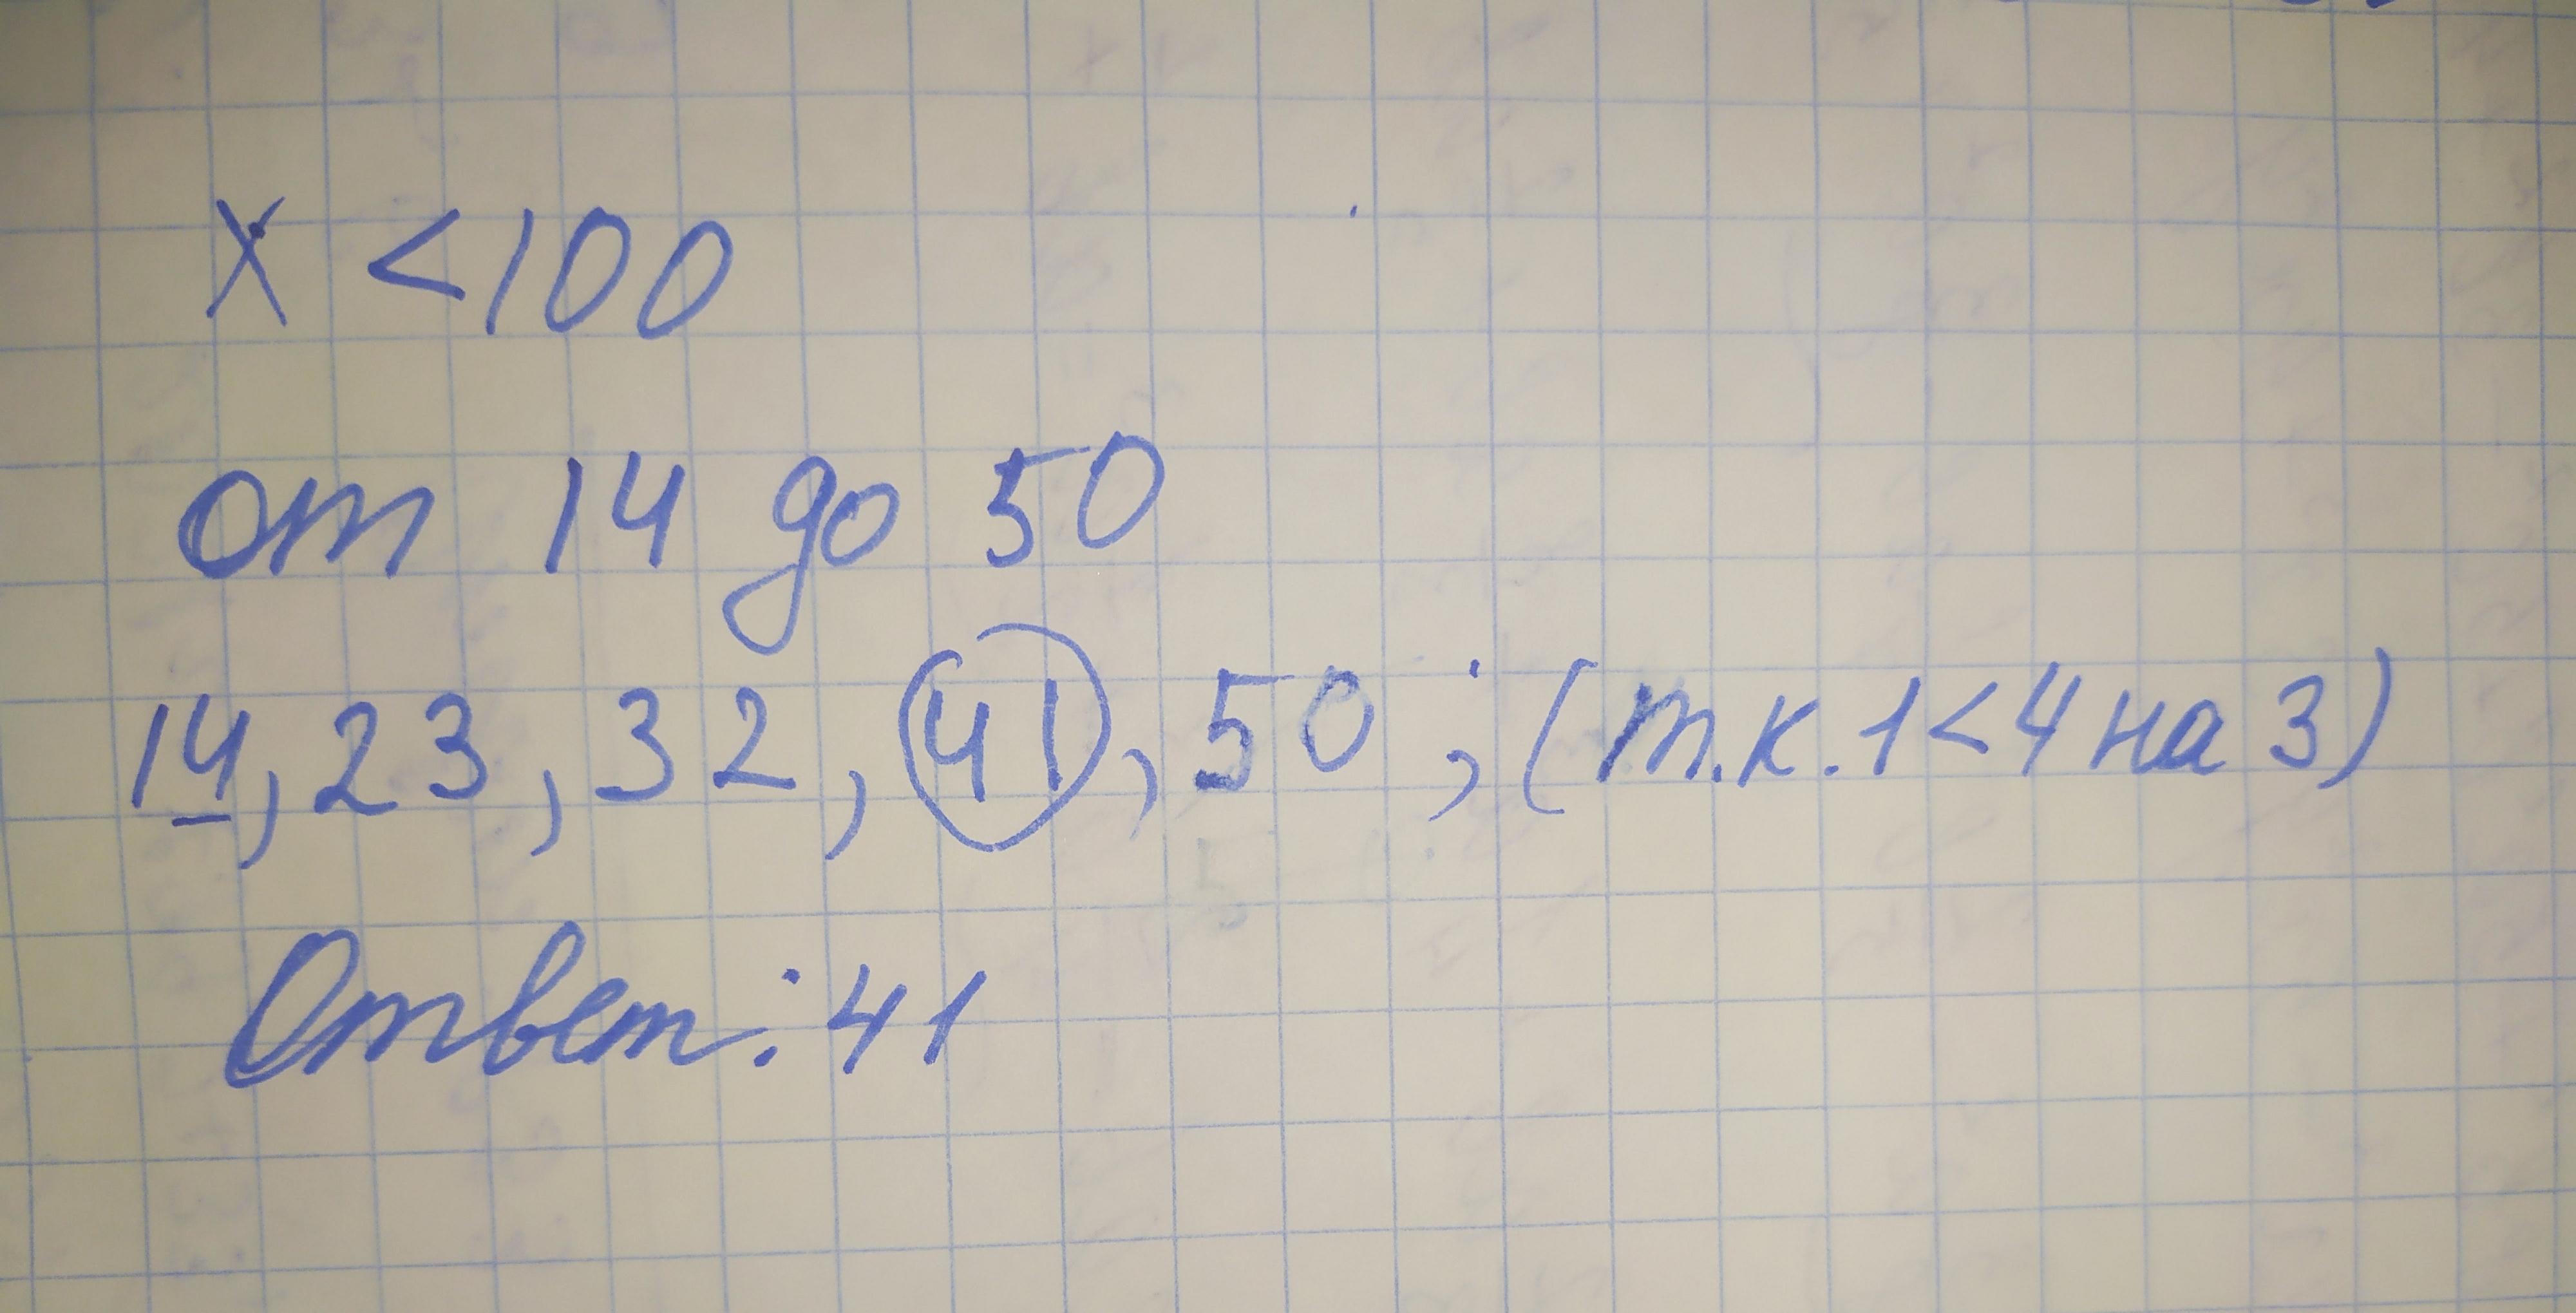 x < 100
от 14 до 50
14, 23, 32, 41, 50; (т.к. 1 < 4 на 3)
Ответ: 41